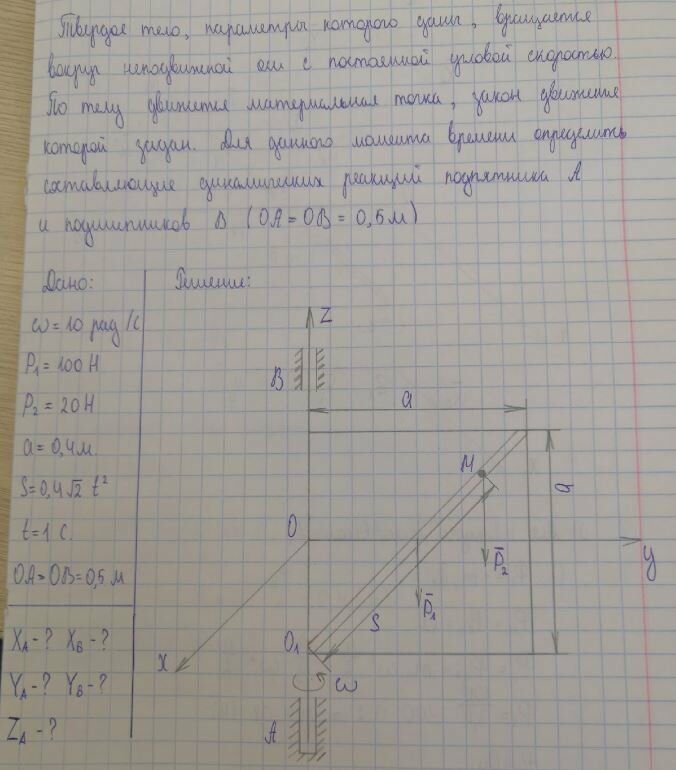 Твердое тело, параметры которого даны, вращается
вокруг неподвижной оси с постоянной угловой скоростью.
По телу движется материальная точка, закон движения
которой задан. Для данного момента времени определить
составляющие динамических реакций подпятника А
и подшипников В (ОА = ОВ = 0,5 м)
Дано:
Решение:
ω = 10 рад/с
P₁ = 100 Н
P₂ = 20 Н
a = 0,4 м.
S = 0,4√2 t²
t = 1 с.
ОА = ОВ = 0,5 м
X_A - ? X_B - ?
Y_A - ? Y_B - ?
Z_A - ?
Z
B
a
M
a
O
y
P̄₂
P̄₁
S
O₁
x
ω
A